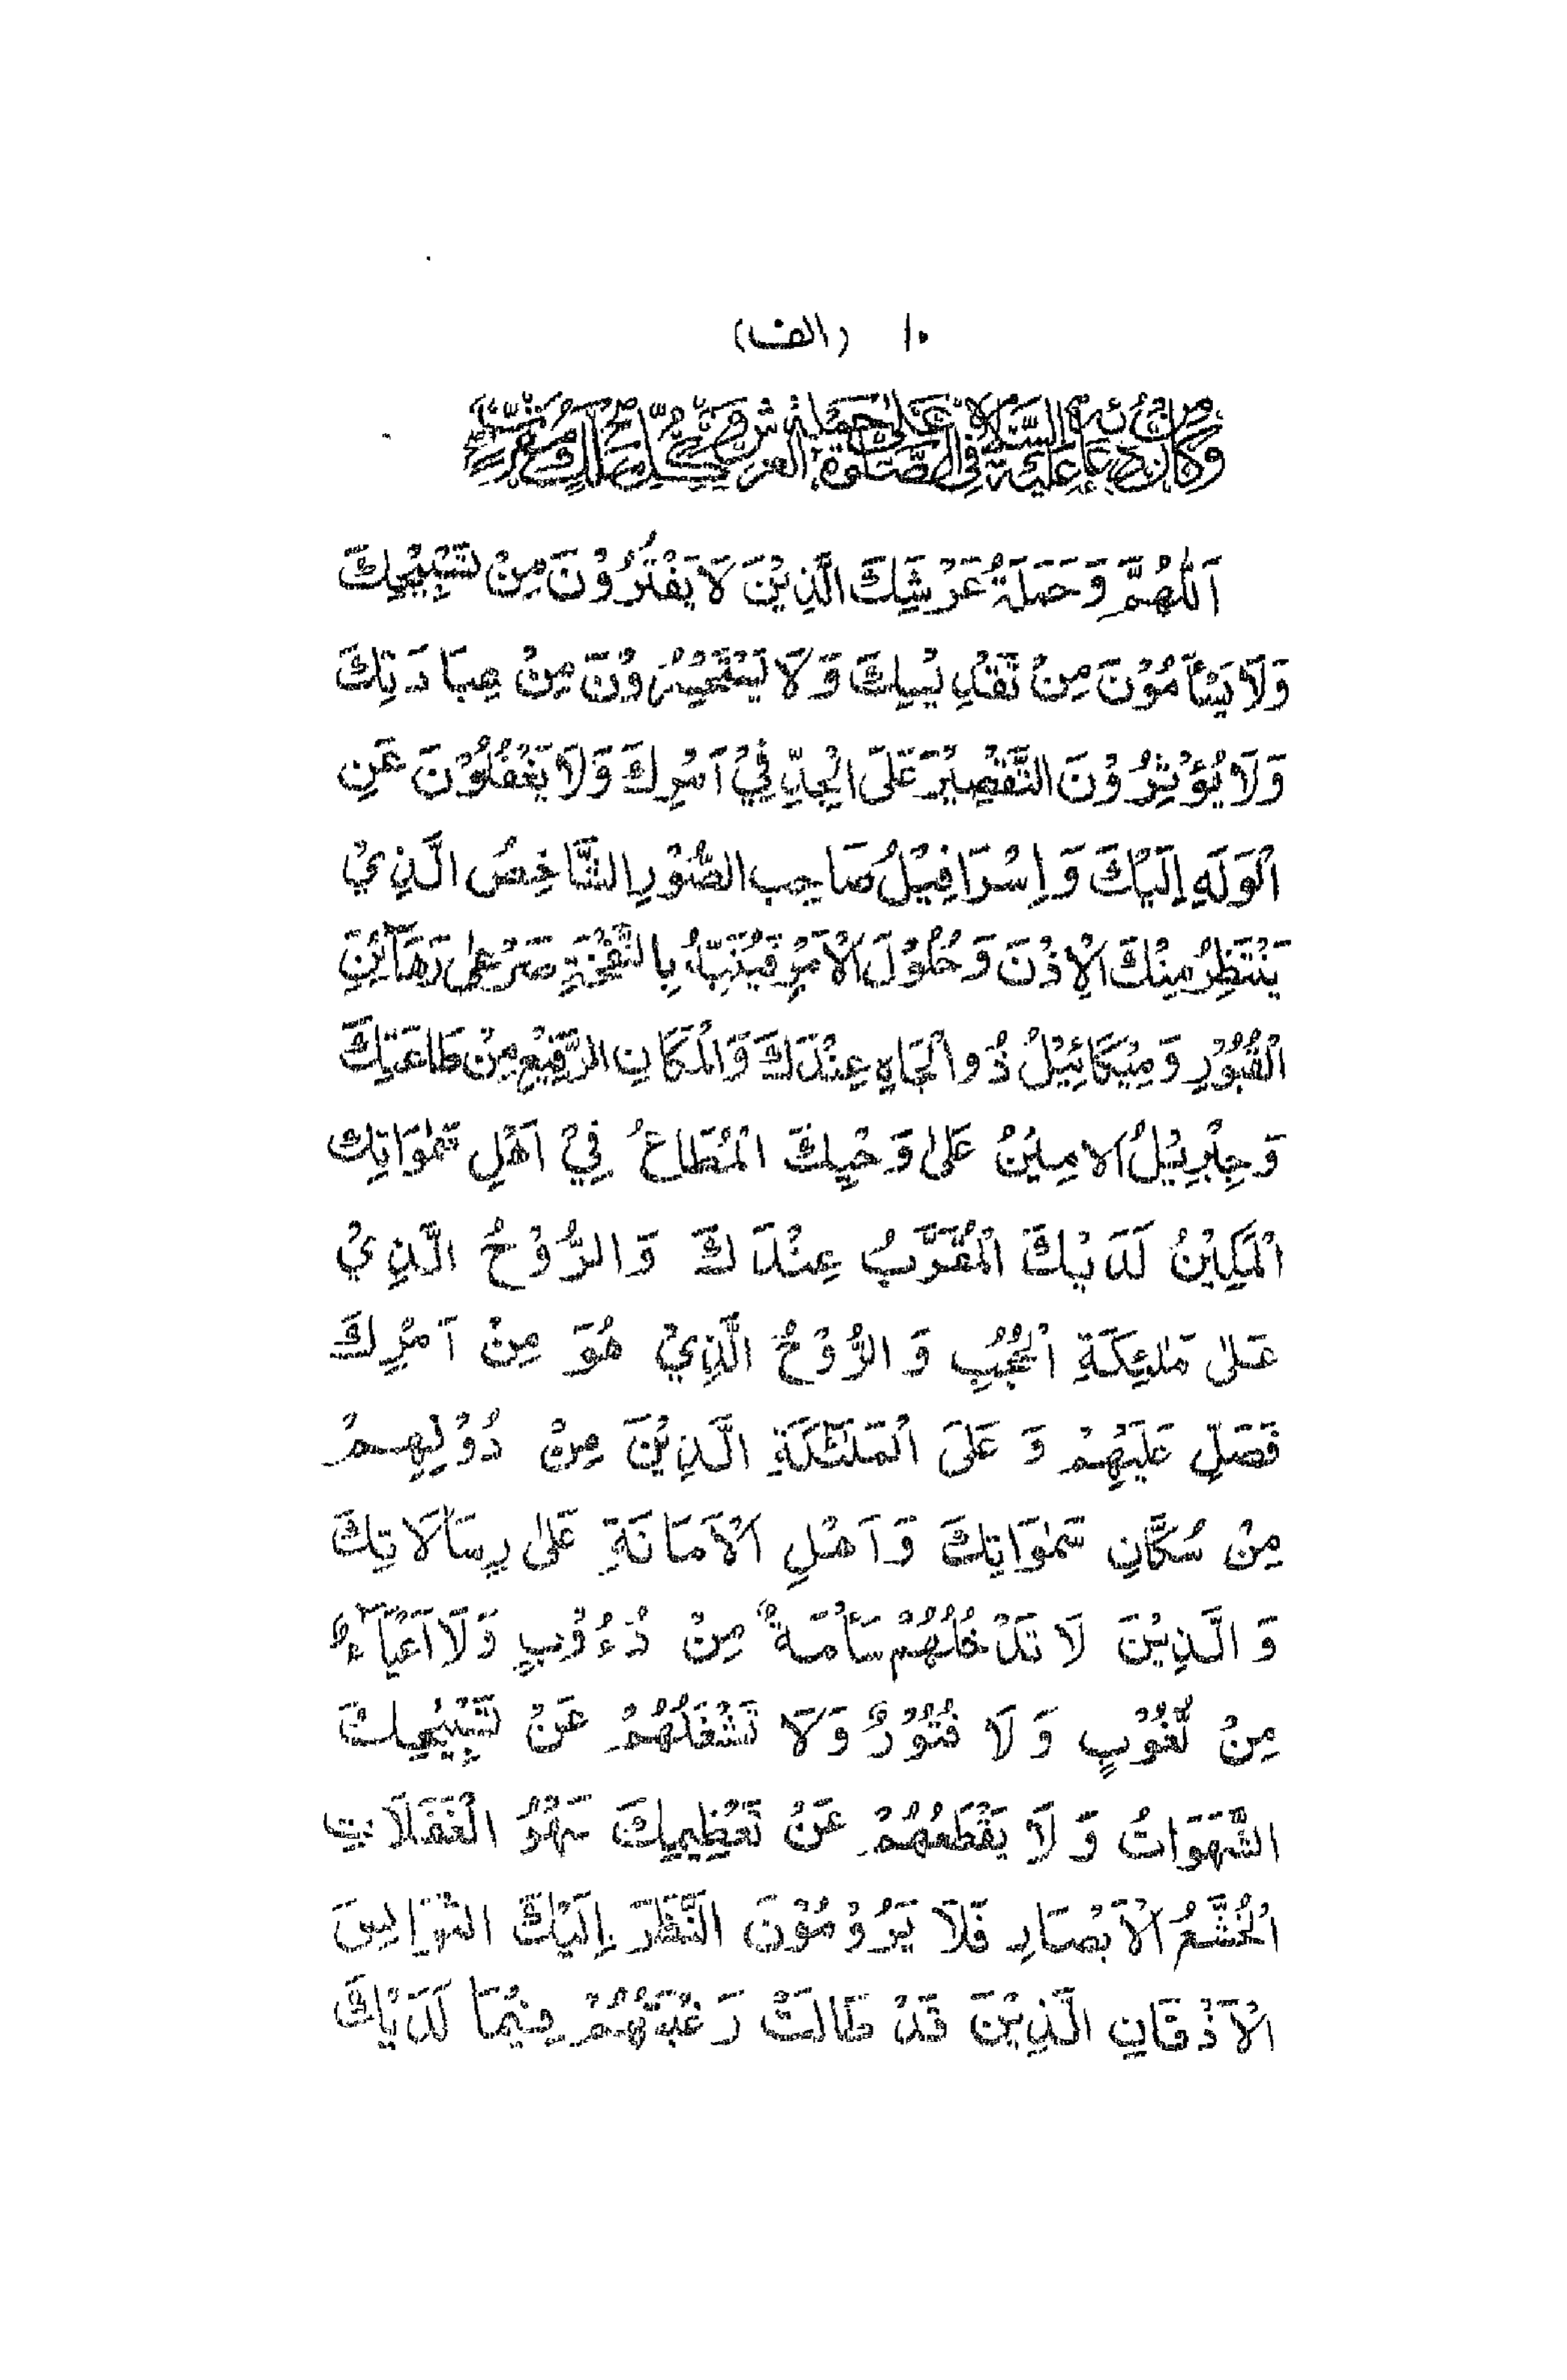 ۱۰ (الف)
وَكَانَ مِنْ دُعَائِهِ عَلَيْهِ السَّلَامُ فِي الصَّلٰوةِ عَلٰى حَمَلَةِ الْعَرْشِ وَكُلِّ مَلَكٍ مُقَرَّبٍ
اَللّٰهُمَّ وَحَمَلَةُ عَرْشِكَ الَّذِيْنَ لَا يَفْتُرُوْنَ مِنْ تَسْبِيْحِكَ
وَلَا يَسْأَمُوْنَ مِنْ تَقْدِيْسِكَ وَلَا يَسْتَحْسِرُوْنَ مِنْ عِبَادَتِكَ
وَلَا يُؤْثِرُوْنَ التَّقْصِيْرَ عَلَى الْجِدِّ فِيْ اَمْرِكَ وَلَا يَغْفُلُوْنَ عَنِ
الْوَلَهِ اِلَيْكَ وَاِسْرَافِيْلُ صَاحِب الصُّوْرِ الشَّاخِصُ الَّذِيْ
يَنْتَظِرُ مِنْكَ الْاِذْنَ وَحُلُوْلَ الْاَمْرِ فَيُنَبِّهُ بِالنَّفْخَةِ صَرْعٰى رَهَآئِنِ
الْقُبُوْرِ وَمِيْكَائِيْلُ ذُو الْجَاهِ عِنْدَكَ وَالْمَكَانِ الرَّفِيْعِ مِنْ طَاعَتِكَ
وَجِبْرِيْلُ الامِيْنُ عَلٰى وَحْيِكَ الْمُطَاعُ فِيْ اَهْلِ سَمٰوَاتِكَ
الْمَكِيْنُ لَدَيْكَ الْمُقَرَّبُ عِنْدَكَ وَالرُّوْحُ الَّذِيْ
عَلٰى مَلٰئِكَةِ الْحُجُبِ وَالرُّوْحُ الَّذِيْ هُوَ مِنْ اَمْرِكَ
فَصَلِّ عَلَيْهِمْ وَعَلَى الْمَلٰٓئِكَةِ الَّذِيْنَ مِنْ دُوْنِهِمْ
مِنْ سُكَّانِ سَمٰوَاتِكَ وَاَهْلِ الْاَمَانَةِ عَلٰى رِسَالَاتِكَ
وَالَّذِيْنَ لَا تَدْخُلُهُمْ سَأْمَةٌ مِنْ دُءُوْبٍ وَلَا اَعْيَآءٌ
مِنْ لُغُوْبٍ وَلَا فُتُوْرٌ وَلَا تَشْغَلُهُمْ عَنْ تَسْبِيْحِكَ
الشَّهَوَاتُ وَلَا يَقْطَعُهُمْ عَنْ تَعْظِيْمِكَ سَهْوُ الْغَفَلَاتِ
الْخُشَّعُ الْاَبْصَارِ فَلَا يَرُوْمُوْنَ النَّظَرَ اِلَيْكَ النَّوَاكِسُ
الْاَذْقَانِ الَّذِيْنَ قَدْ طَالَتْ رَغْبَتُهُمْ فِيْمَا لَدَيْكَ